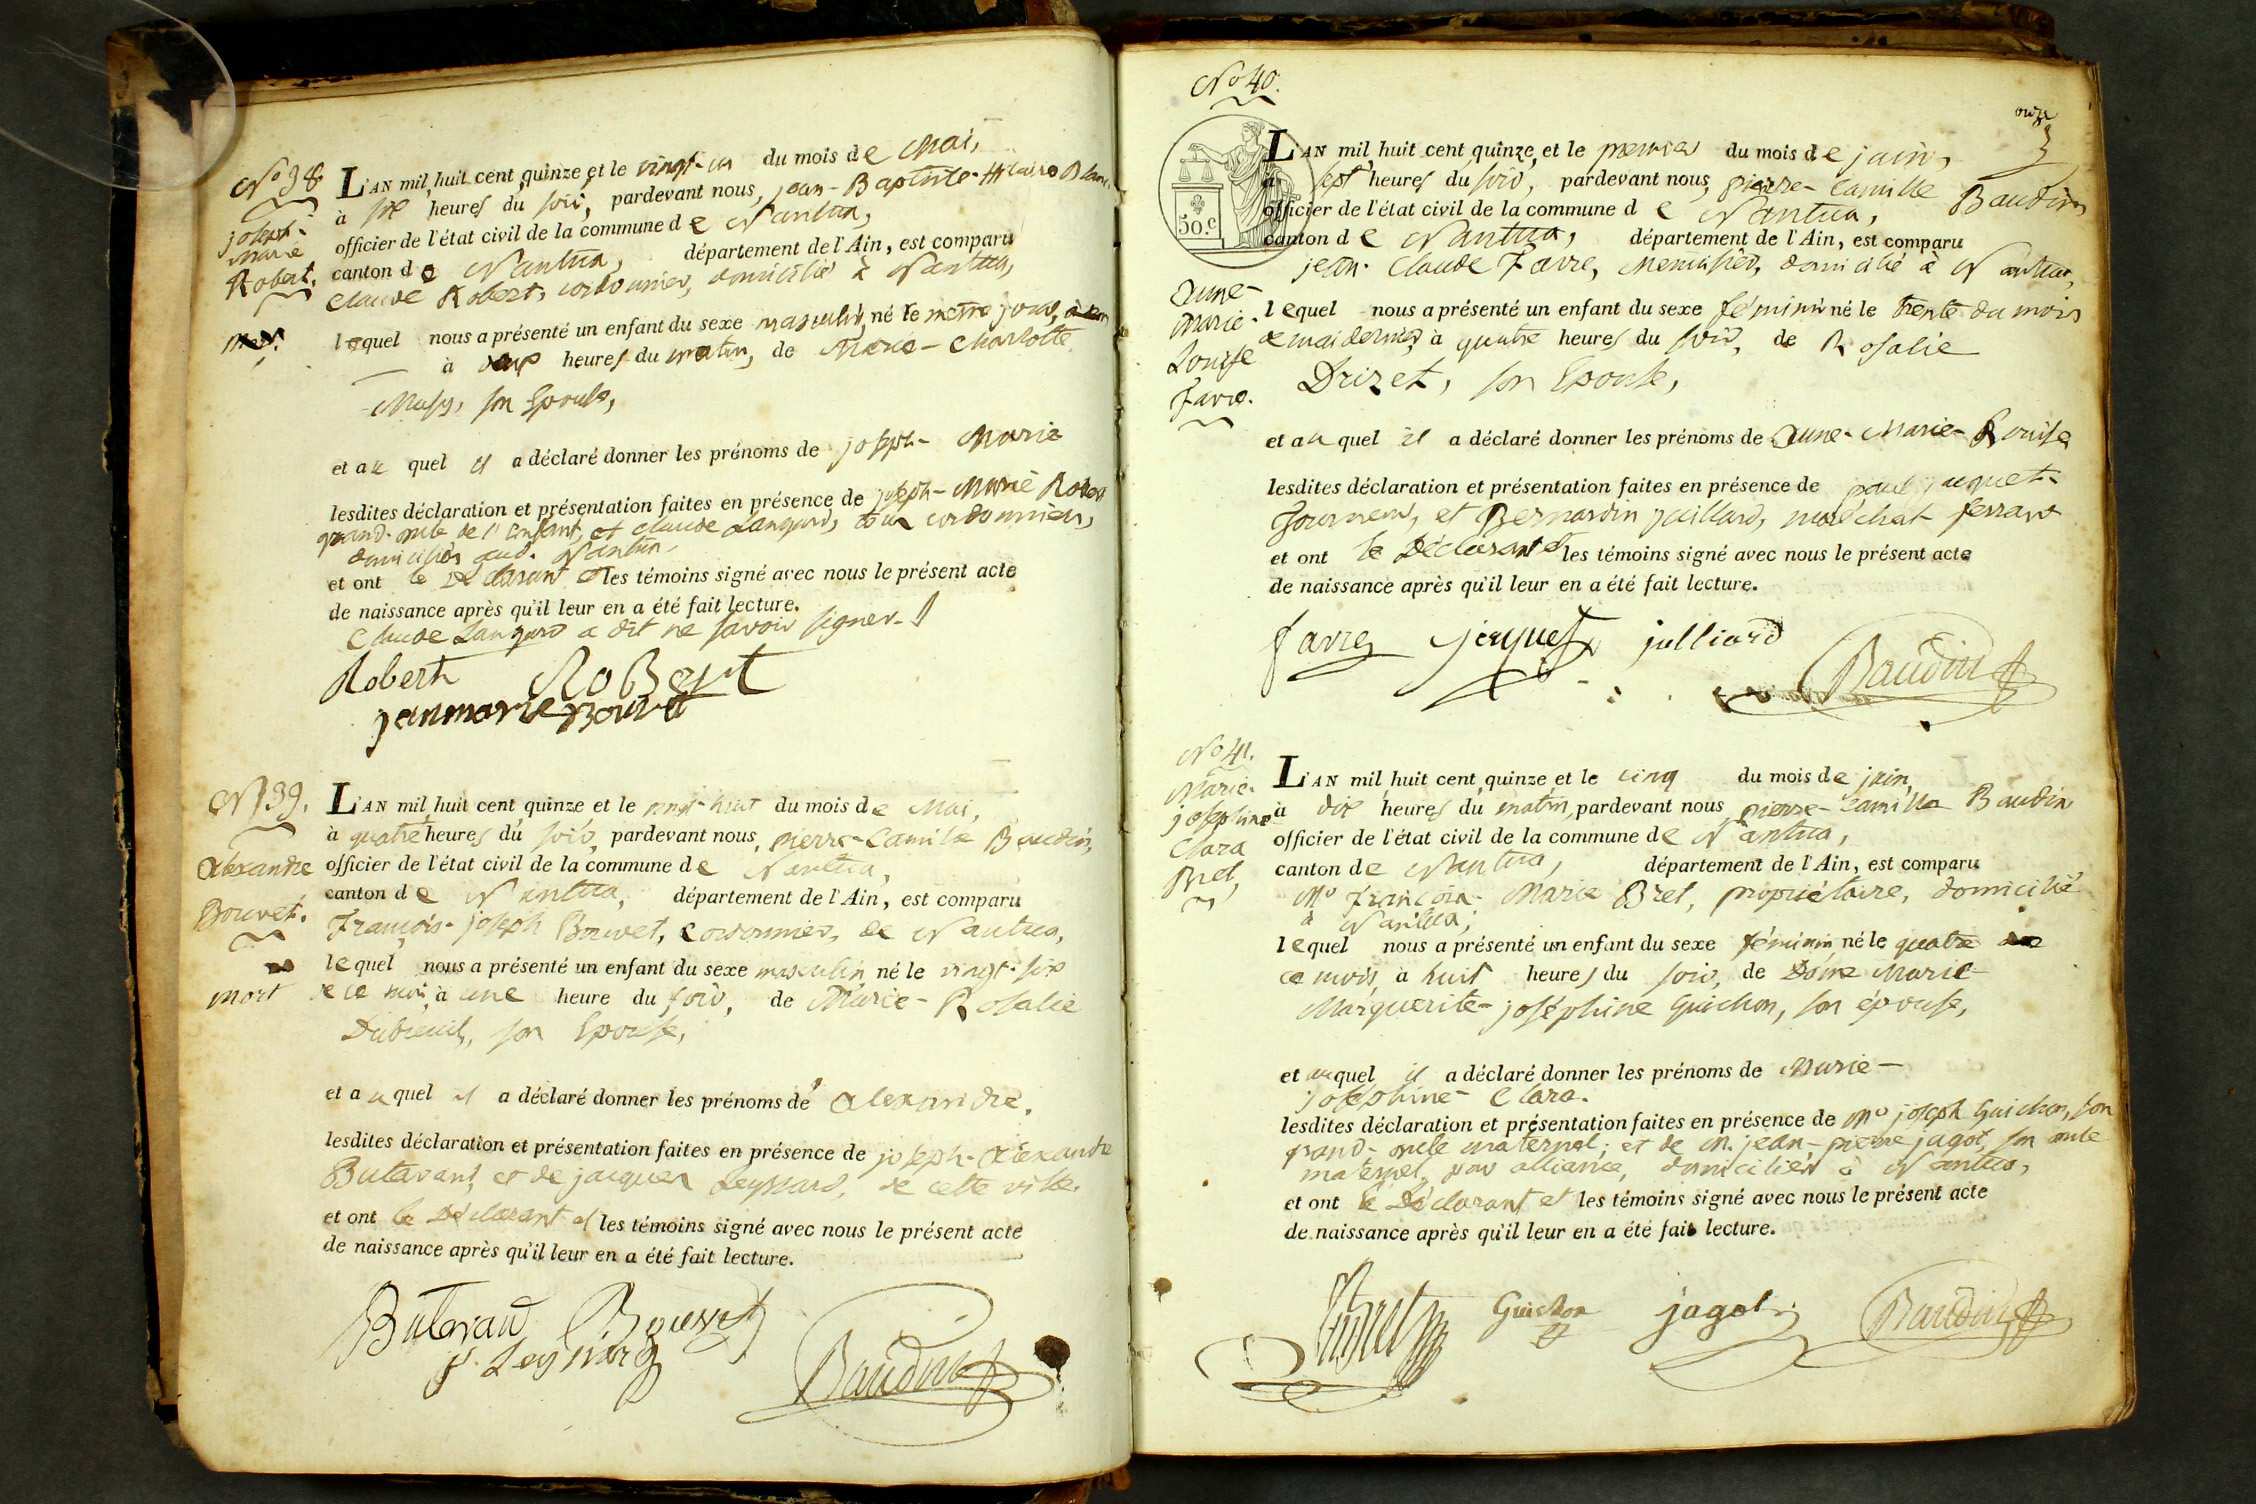 No 38
joseph-
Marie
Robert.
mort.
L'AN mil huit cent quinze et le vingt-un du mois de Mai,
à six heures du soir, pardevant nous, jean-Baptiste-Hilaire
officier de l'état civil de la commune de Nantua,
canton de Nantua, département de l'Ain, est comparu
Claude Robert, cordonnier, domicilié à Nantua,
lequel nous a présenté un enfant du sexe masculin, né le même jour,
à heures du matin, de Marie-Charlotte
son Epouse,
et au quel il a déclaré donner les prénoms de joseph-Marie
lesdites déclaration et présentation faites en présence de joseph-Marie Robert
grand-oncle de l'enfant, et Claude Langard, tous cordonniers,
domiciliés aud. Nantua
et ont le Déclarant et les témoins signé avec nous le présent acte
de naissance après qu'il leur en a été fait lecture.
Claude Langard a dit ne savoir signer.
Robert RoBert
janmarie Bouvet
No 39.
Alexandre
Bouvet.
mort
L'AN mil huit cent quinze et le vingt-huit du mois de Mai,
à quatre heures du soir, pardevant nous, pierre-Camille Baudin,
officier de l'état civil de la commune de Nantua,
canton de Nantua, département de l'Ain, est comparu
François-joseph Bouvet, cordonnier, de Nantua,
lequel nous a présenté un enfant du sexe masculin né le vingt-six
de ce mois, à une heure du soir, de Marie-Rosalie
Dubreuil, son Epouse,
et au quel il a déclaré donner les prénoms de Alexandre.
lesdites déclaration et présentation faites en présence de joseph-Alexandre
Butavant, et de jacques Leyssard, de cette ville.
et ont le Déclarant et les témoins signé avec nous le présent acte
de naissance après qu'il leur en a été fait lecture.
Butavand Bouvet
j. Leyssard
Baudin
No 40.
onze
Anne-
Marie-
Louise
Favre.
50.c
L'AN mil huit cent quinze, et le premier du mois de juin,
à sept heures du soir, pardevant nous, pierre-Camille Baudin
officier de l'état civil de la commune de Nantua,
canton de Nantua, département de l'Ain, est comparu
jean-Claude Favre, Menuisier, domicilié à Nantua,
lequel nous a présenté un enfant du sexe féminin né le trente du mois
de mai dernier, à quatre heures du soir, de Rosalie
Drizet, son Epouse,
et au quel il a déclaré donner les prénoms de Anne-Marie-Louise
lesdites déclaration et présentation faites en présence de paul jacquet-
Tourneur, et Bernardin juillard, maréchal ferrant
et ont le Déclarant et les témoins signé avec nous le présent acte
de naissance après qu'il leur en a été fait lecture.
favre jacquet julliard
Baudin
No 41.
Marie-
josephine
Clara
Bret,
L'AN mil huit cent quinze et le cinq du mois de juin,
à dix heures du matin, pardevant nous pierre-Camille Baudin
officier de l'état civil de la commune de Nantua,
canton de Nantua, département de l'Ain, est comparu
Mr François-Marie Bret, propriétaire, domicilié
à Nantua;
lequel nous a présenté un enfant du sexe féminin né le quatre de
ce mois, à huit heures du soir, de Dame Marie-
Marguerite-joséphine Guichon, son épouse,
et auquel il a déclaré donner les prénoms de Marie-
joséphine-Clara.
lesdites déclaration et présentation faites en présence de Mr joseph Guichon, son
grand-oncle maternel; et de M. jean-pierre jagot, son oncle
maternel, par alliance, domiciliés à Nantua,
et ont le Déclarant et les témoins signé avec nous le présent acte
de naissance après qu'il leur en a été fait lecture.
Bret Guichon jagot Baudin